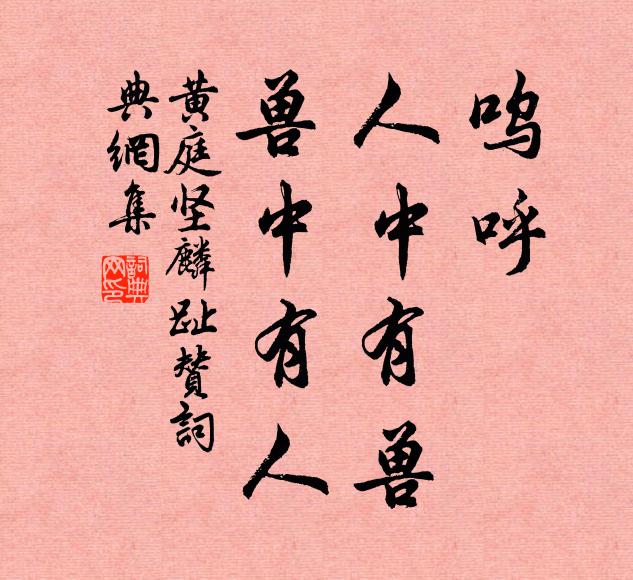 呜呼
人中有兽
兽中有人
黄庭坚麟趾赞詞
典網集
詞典网印